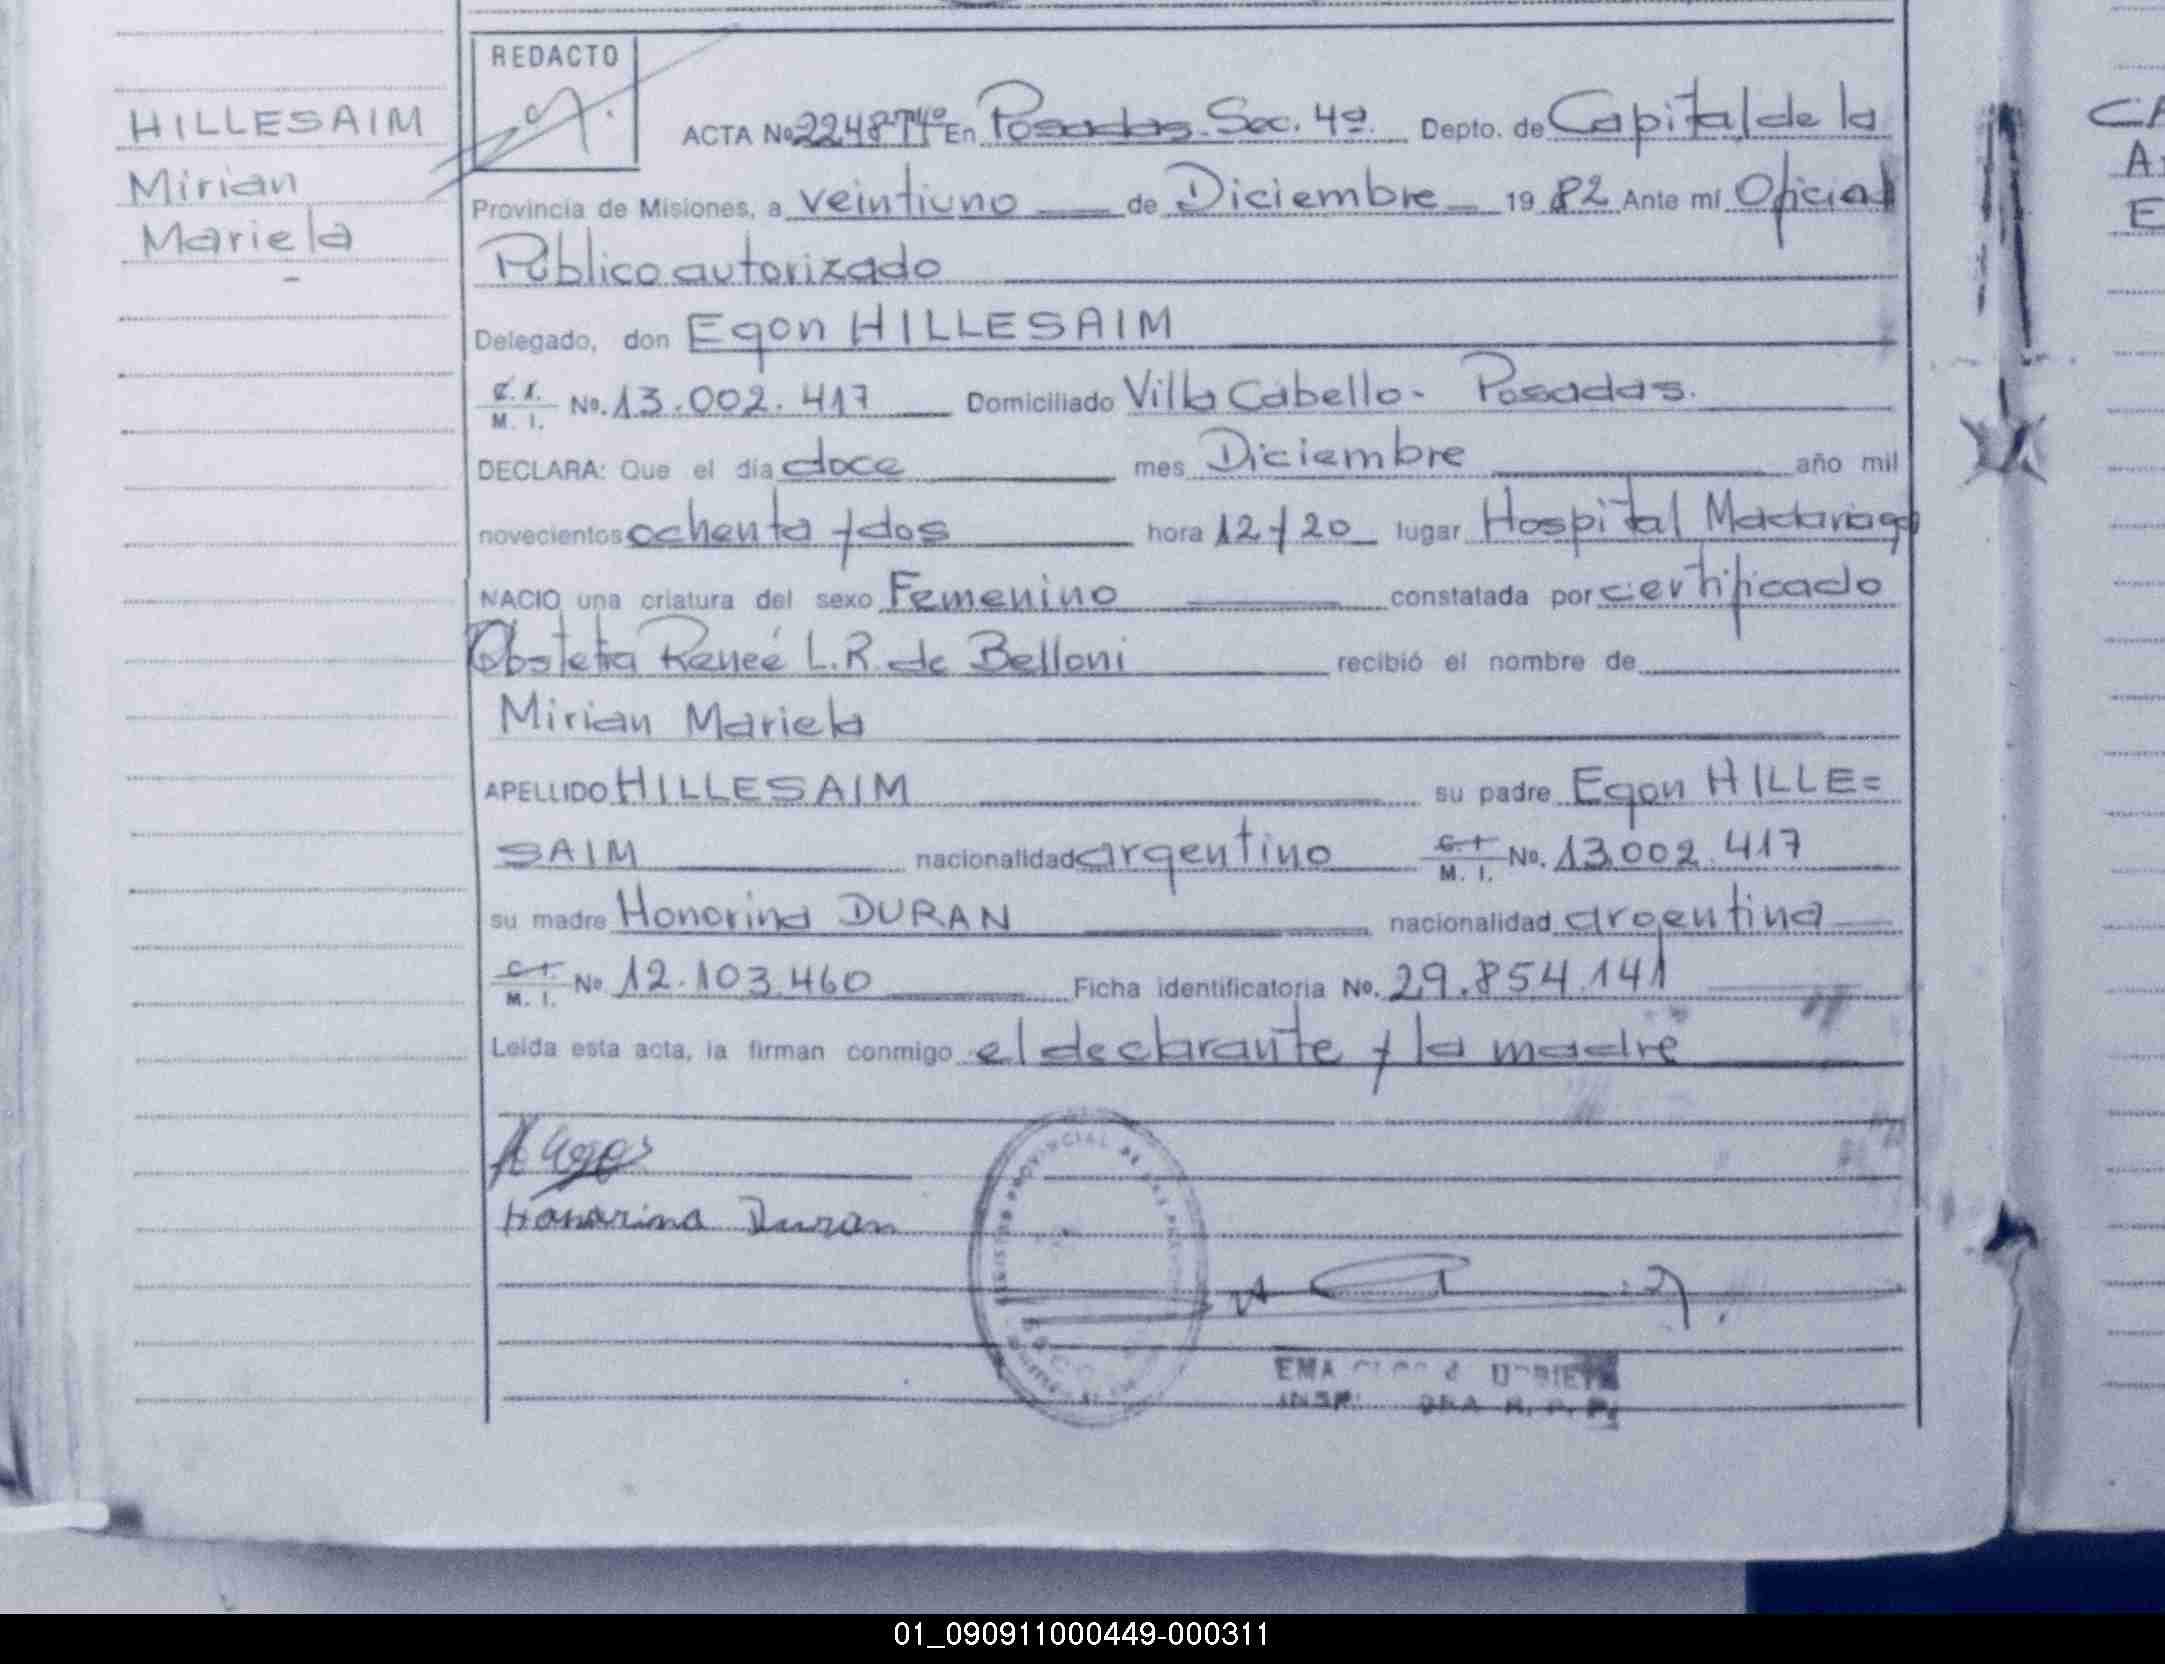 HILLESAIM
Mirian
Mariela
REDACTO
ACTA No 2248 Tº4º En Posadas. Sec. 4ª. Depto. de Capital de la
Provincia de Misiones, a veintiuno de Diciembre 19 82 Ante mí Oficial
Público autorizado
Delegado, don Egon HILLESAIM
C. I. M. I. No. 13.002.417 Domiciliado Villa Cabello - Posadas.
DECLARA: Que el día doce mes Diciembre año mil
novecientos ochenta y dos hora 12y20 lugar Hospital Madariaga
NACIO una criatura del sexo Femenino constatada por certificado
Obstetra Reneé L.R. de Belloni recibió el nombre de
Mirian Mariela
APELLIDO HILLESAIM su padre Egon HILLE=
SAIM nacionalidad argentino C. I. M. I. No. 13.002.417
su madre Honorina DURAN nacionalidad argentina
C. I. M. I. No 12.103.460 Ficha identificatoria No. 29.854.141
Leída esta acta, la firman conmigo el declarante y la madre
Honorina Duran
PROVINCIAL DE LAS
EMA
INSP. R. P. P.
CA
A
E
01_090911000449-000311